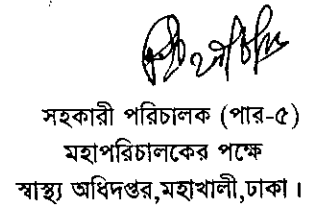 সহকারী পরিচালক (পার-৫)
মহাপরিচালকের পক্ষে
স্বাস্থ্য অধিদপ্তর,মহাখালী,ঢাকা।